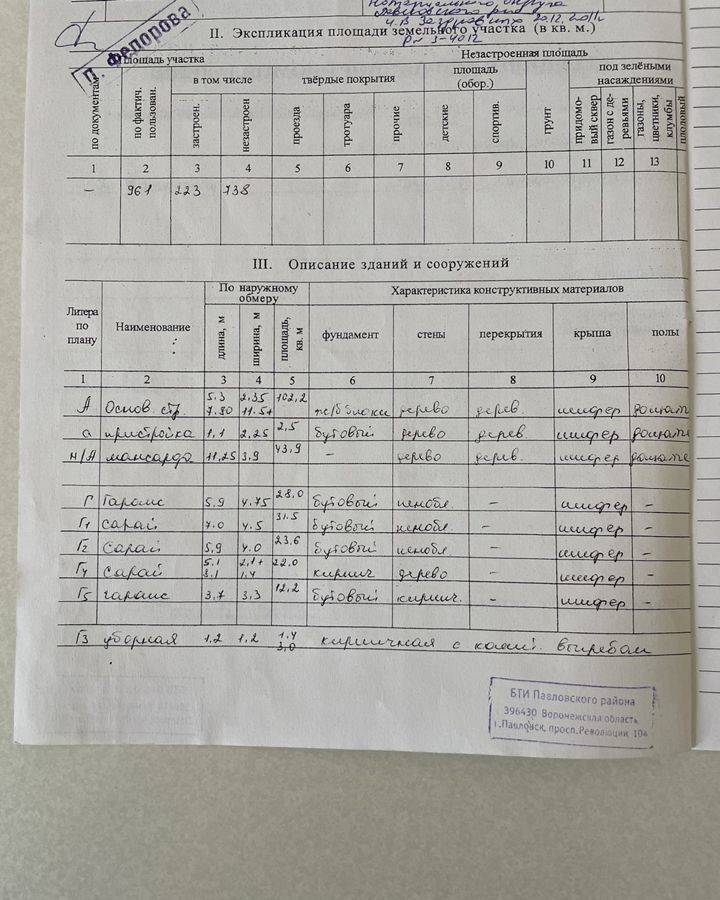 20.12.2011г
р № 3-4012
П. Федорова
II. Экспликация площади земельного участка (в кв. м.)
Площадь участка
Незастроенная площадь
в том числе
твёрдые покрытия
площадь (обор.)
под зелёными насаждениями
по документам
по фактич. пользован.
застроен.
незастроен
проезда
тротуара
прочие
детские
спортив.
грунт
придомовый сквер
газон с деревьями
газоны, цветники, клумбы
плодовый
1 2 3 4 5 6 7 8 9 10 11 12 13
– 961 223 738
III. Описание зданий и сооружений
Литера по плану
Наименование
По наружному обмеру
Характеристика конструктивных материалов
длина, м
ширина, м
площадь, кв. м
фундамент
стены
перекрытия
крыша
полы
1 2 3 4 5 6 7 8 9 10
5.3 2,35 102,2
А Основ. стр. 7.80 11.5+ ж/б блоки дерево дерев. шифер дощат
а пристройка 1,1 2,25 2,5 бутовый дерево дерев шифер дощат
н/А мансарда 11,25 3,9 43,9 – дерево дерев. шифер дощат
Г Гараж 5.9 4.75 28,0 бутовый шнобл. – шифер –
Г1 сарай 7.0 4.5 31.5 бутовый шнобл. – шифер –
Г2 Сарай 5,9 4.0 23,6 бутовый шнобл. – шифер –
5.1 2,1+ 22,0
Г4 сарай 1,4 кирпич дерево – шифер –
Г5 гараж 3,7 3,3 12,2 бутовый кирпич. – шифер –
Г3 уборная 1,2 1,2 1,4 кирпичная с выгребом
3,0
БТИ Павловского района
396430 Воронежская область
г.Павловск, просп.Революции, 10а